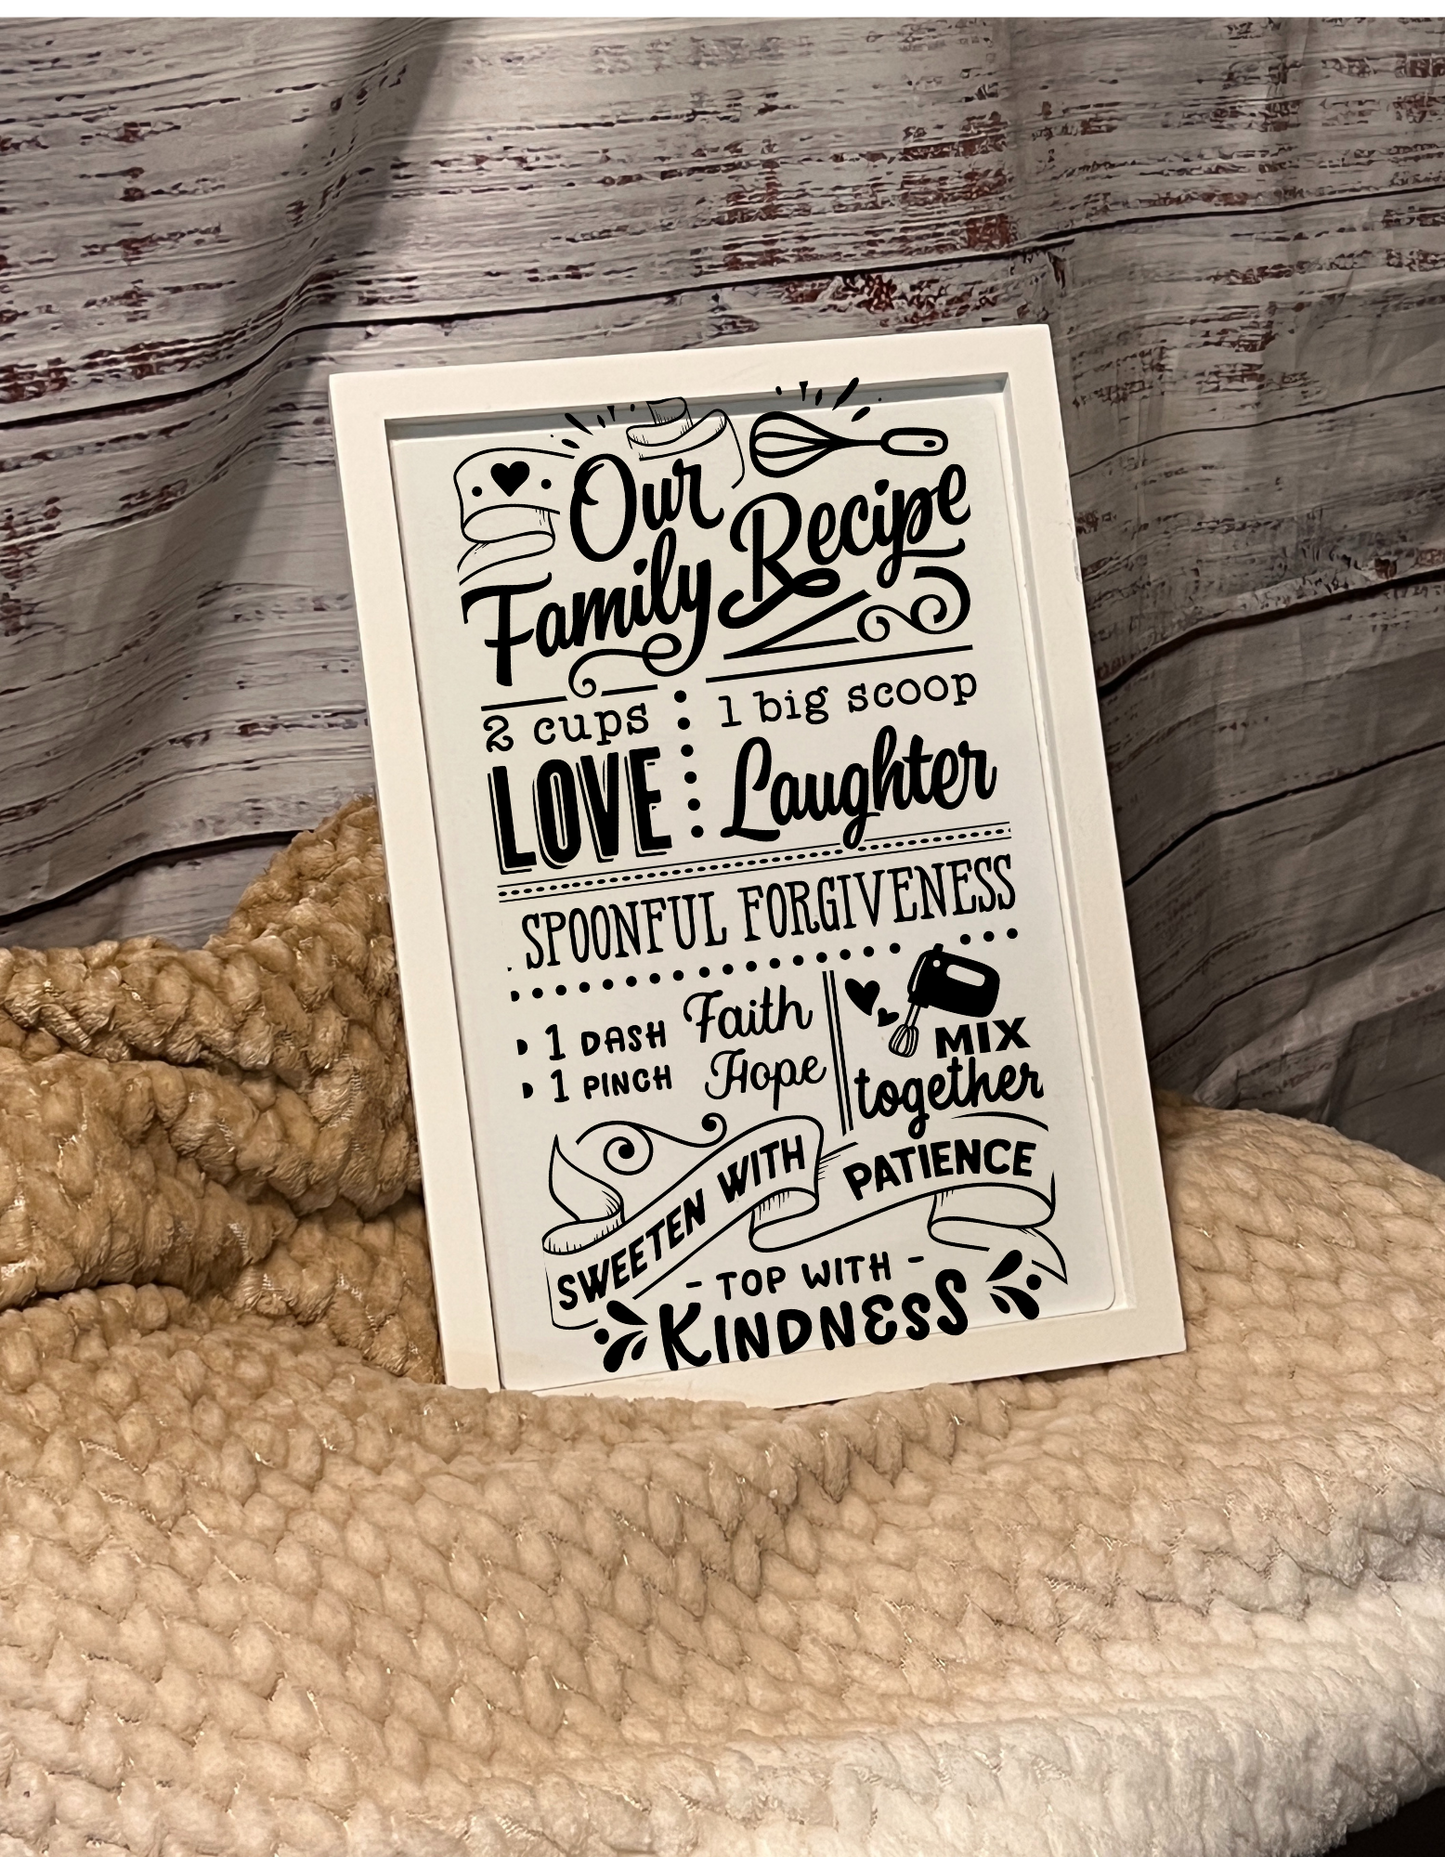 Our
Family Recipe
2 cups
LOVE
1 big scoop
Laughter
SPOONFUL FORGIVENESS
1 DASH Faith
1 PINCH Hope
MIX
together
SWEETEN WITH PATIENCE
- TOP WITH -
KINDNESS